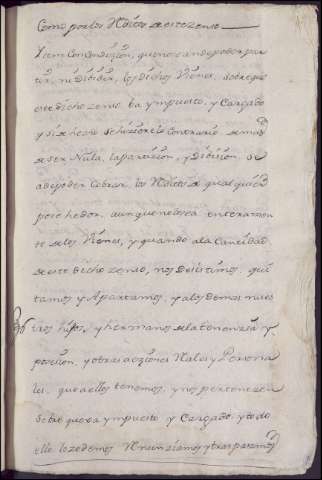 Como por los Réditos de este zenso
Yten Con Condizion, que no se an de poder par
tir, ni dibidir, los dichos Vienes, sobre que
este dicho zenso ba ympuesto, y Cargado
y si se hiziere lo contrario, de mas
de ser Nula, la partizion, y Dibision, se
a de poder Cobrar, los Réditos de qual quier
poseehedor, aunque no lo sea enteramen
te de los Vienes, y quanto a la Cantidad
de este dicho zenso, nos Desistimos, qui
tamos y Apartamos, y a los demas nues
tros hijos, y hermanos de la tenenzia y
posesion, y otras acziones Reales y Persona
les, que a ellos tenemos, y nos pertenezen
sobre que va ympuesto y Cargado, y todo
ello lo zedemos Renunziamos y traspasamos